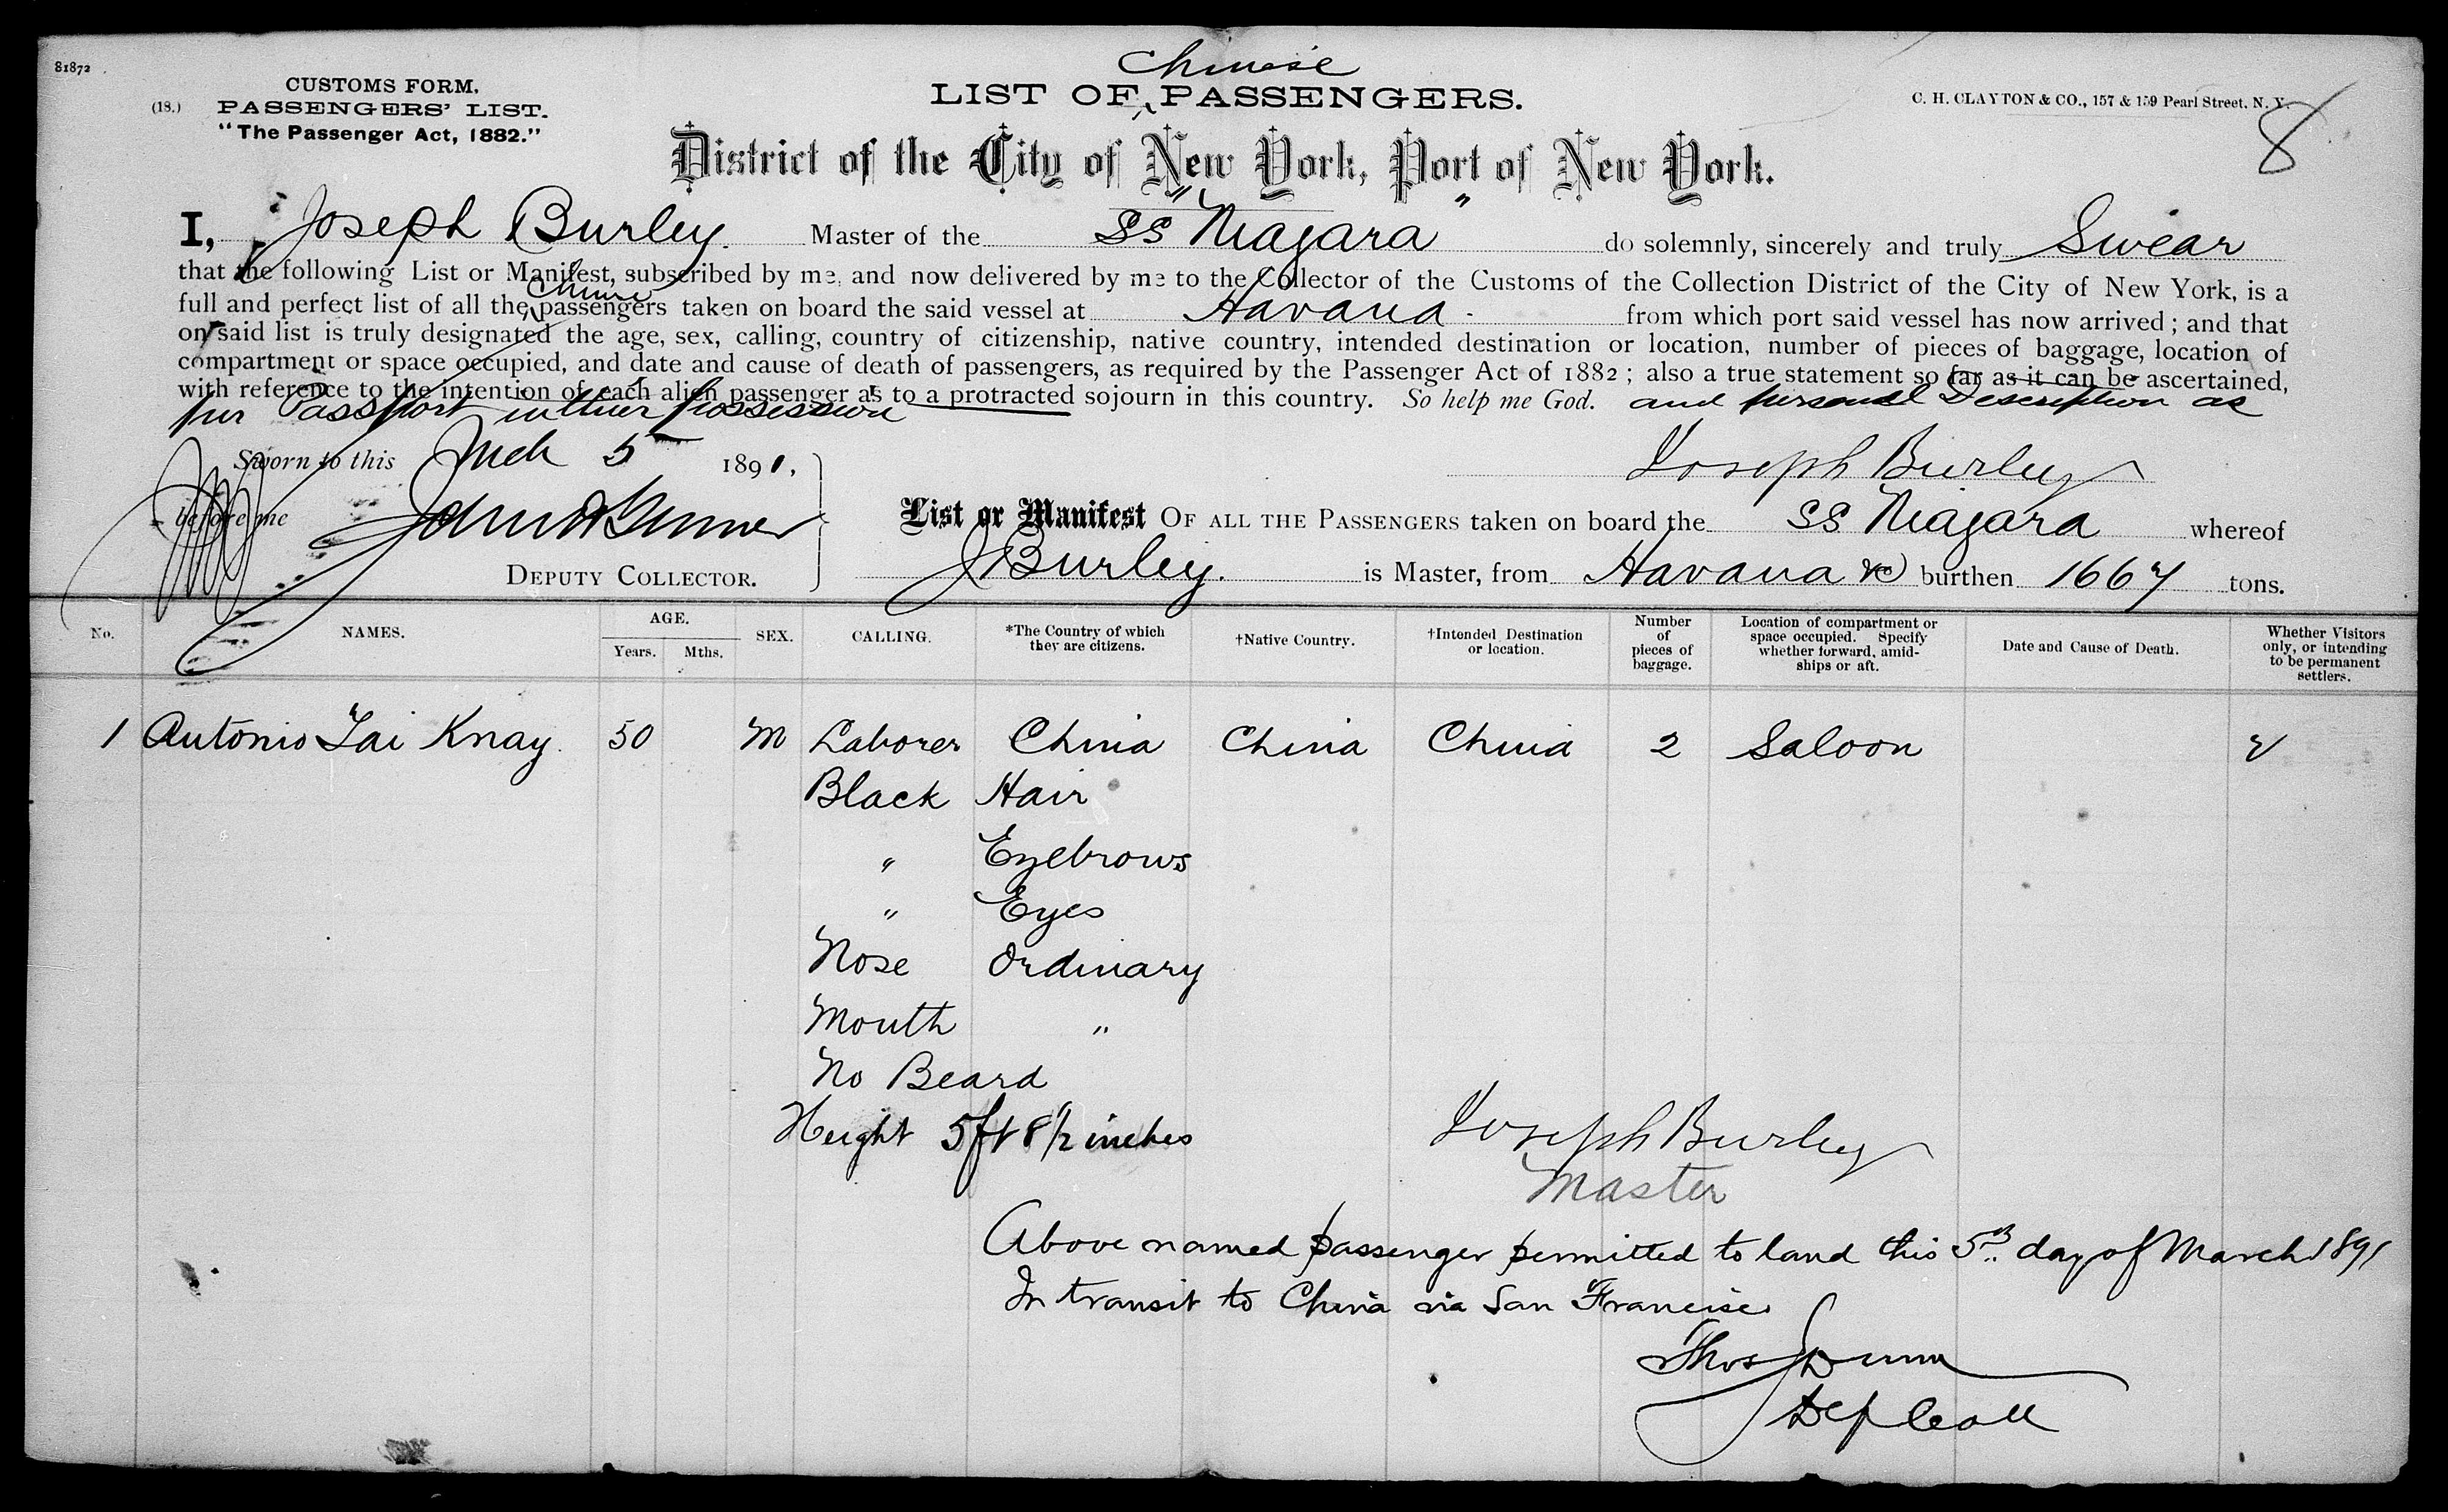 81872
CUSTOMS FORM.
(18.) PASSENGERS' LIST.
"The Passenger Act, 1882."
Chinese
LIST OF PASSENGERS.
C. H. CLAYTON & CO., 157 & 159 Pearl Street, N. Y.
8
District of the City of New York, Port of New York.
I, Joseph Burley. Master of the SS "Niagara" do solemnly, sincerely and truly Swear
that the following List or Manifest, subscribed by me, and now delivered by me to the Collector of the Customs of the Collection District of the City of New York, is a
Chinese
full and perfect list of all the passengers taken on board the said vessel at Havana from which port said vessel has now arrived; and that
on said list is truly designated the age, sex, calling, country of citizenship, native country, intended destination or location, number of pieces of baggage, location of
compartment or space occupied, and date and cause of death of passengers, as required by the Passenger Act of 1882; also a true statement so far as it can be ascertained,
with reference to the intention of each alien passenger as to a protracted sojourn in this country. So help me God. and personal Description as
per Passport in their possession
Sworn to this Mch 5 1891,
Joseph Burley
before me
DEPUTY COLLECTOR.
List or Manifest OF ALL THE PASSENGERS taken on board the SS Niagara whereof
J Burley. is Master, from Havana &c burthen 1667 tons.
No. NAMES. AGE. Years. Mths. SEX. CALLING. *The Country of which they are citizens. †Native Country. †Intended Destination or location. Number of pieces of baggage. Location of compartment or space occupied. Specify whether forward, amidships or aft. Date and Cause of Death. Whether Visitors only, or intending to be permanent settlers.
1 Antonio Tai Knay. 50 M Laborer China China China 2 Saloon V
Black Hair
" Eyebrows
" Eyes
Nose Ordinary
Mouth "
No Beard
Height 5ft 8 1/2 inches
Joseph Burley
Master
Above named passenger permitted to land this 5th day of March 1891
In transit to China via San Francisco
Thos Dunn
Dep Coll